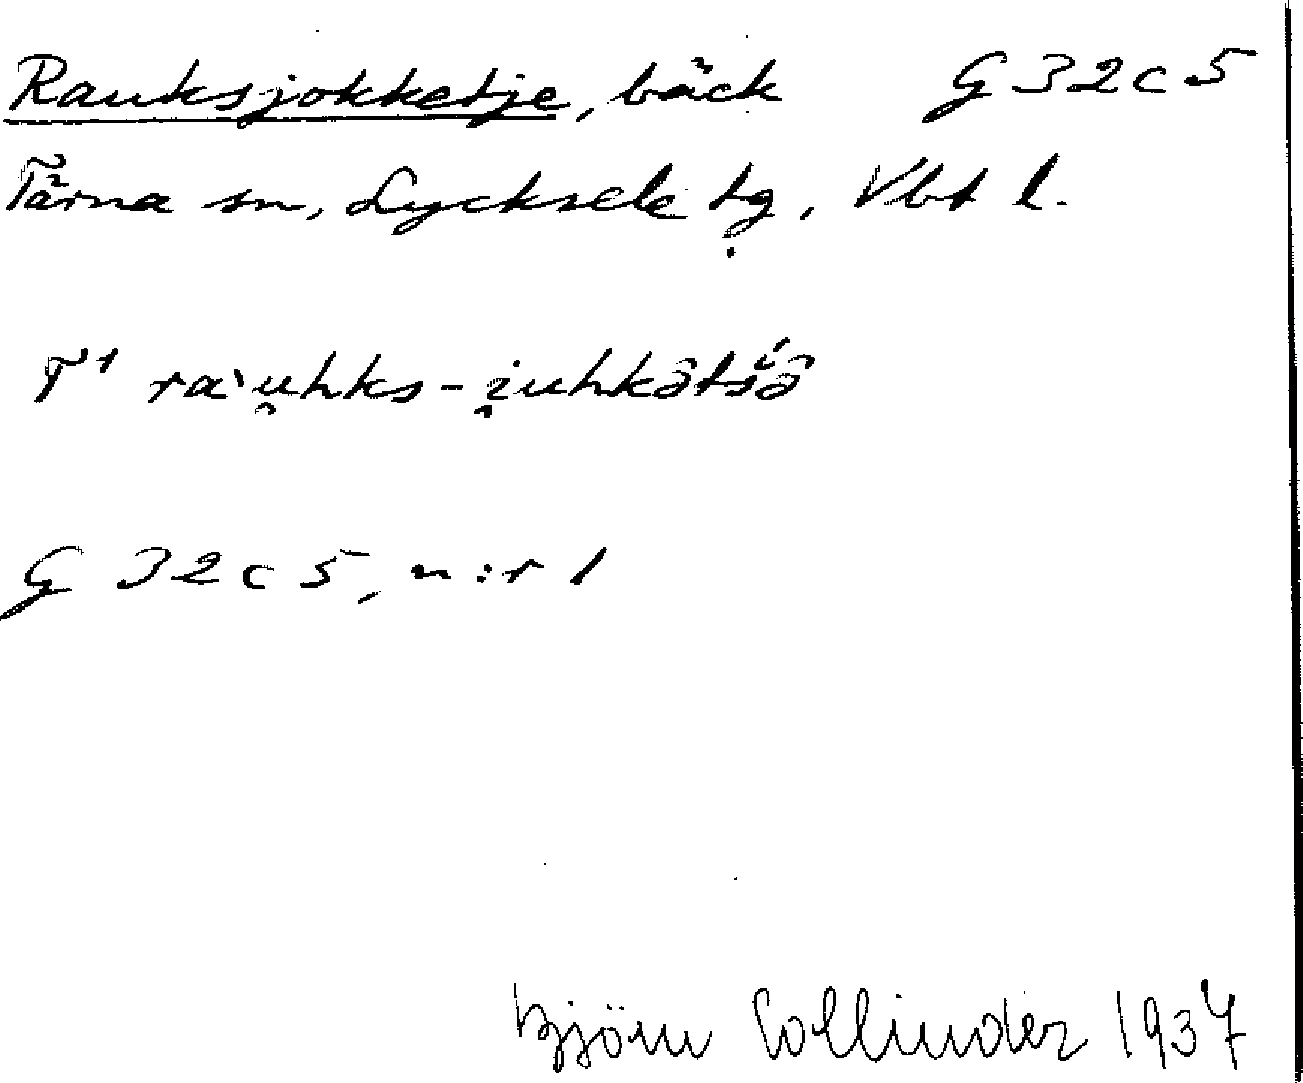 Rauksjokketje, bäck G 32 c 5
Tärna sn, Lycksele tg, Vbt l.
T¹ ra`u̯hks-i̯uhkətś́ə̂
G 32 c 5, n:r 1
Björn Collinder 1937